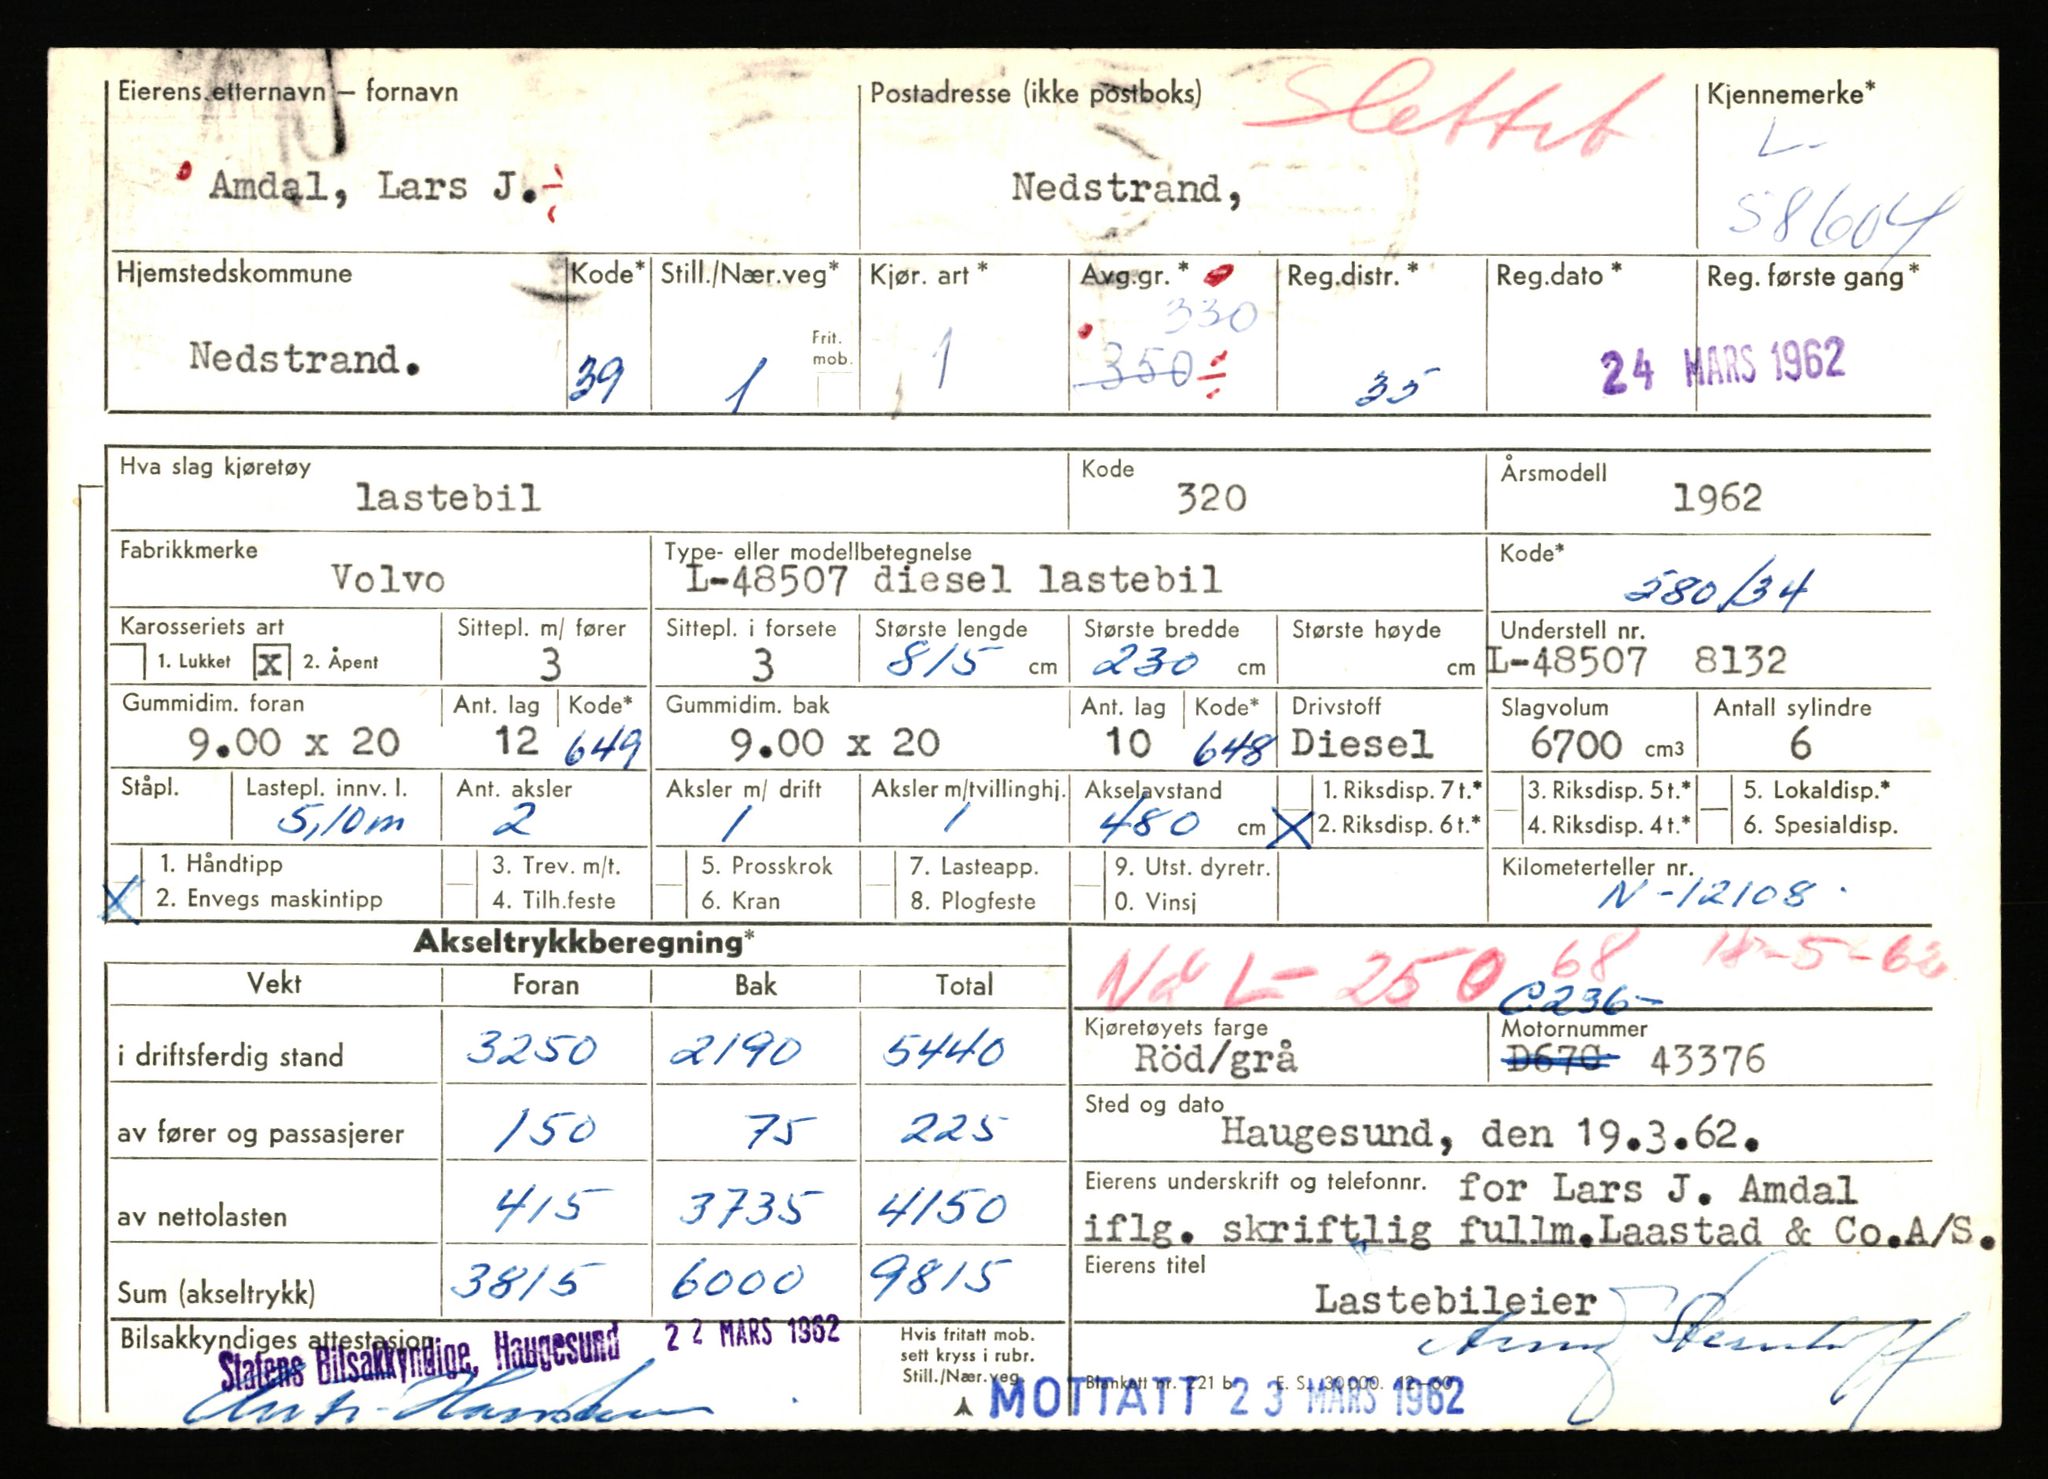 Eierens etternavn – fornavn
Amdal, Lars J.
Postadresse (ikke postboks)
Nedstrand,
Slettet
Kjennemerke*
L-
58604
Hjemstedskommune
Nedstrand.
Kode*
39
Still./Nær.veg*
1
Frit. mob.
Kjør. art *
1
Avg.gr. *
330
350
Reg.distr. *
35
Reg.dato *
Reg. første gang*
24 MARS 1962
Hva slag kjøretøy
lastebil
Kode
320
Årsmodell
1962
Fabrikkmerke
Volvo
Type- eller modellbetegnelse
L-48507 diesel lastebil
Kode*
580/34
Karosseriets art
1. Lukket x 2. Åpent
Sittepl. m/ fører
3
Sittepl. i forsete
3
Største lengde
815 cm
Største bredde
230 cm
Største høyde
cm
Understell nr.
L-48507 8132
Gummidim. foran
9.00 x 20
Ant. lag
12
Kode*
649
Gummidim. bak
9.00 x 20
Ant. lag
10
Kode*
648
Drivstoff
Diesel
Slagvolum
6700 cm3
Antall sylindre
6
Ståpl.
Lastepl. innv. l.
5,10m
Ant. aksler
2
Aksler m/ drift
1
Aksler m/tvillinghj.
1
Akselavstand
480 cm
1. Riksdisp. 7 t.*
X 2. Riksdisp. 6 t.*
3. Riksdisp. 5 t.*
4. Riksdisp. 4 t.*
5. Lokaldisp.*
6. Spesialdisp.
1. Håndtipp
X 2. Envegs maskintipp
3. Trev. m/t.
4. Tilh.feste
5. Prosskrok
6. Kran
7. Lasteapp.
8. Plogfeste
9. Utst. dyretr.
0. Vinsj
Kilometerteller nr.
N-12108.
Akseltrykkberegning*
Vekt Foran Bak Total
i driftsferdig stand 3250 2190 5440
av fører og passasjerer 150 75 225
av nettolasten 415 3735 4150
Sum (akseltrykk) 3815 6000 9815
Nå L- 250 68
C236-
Kjøretøyets farge
Röd/grå
Motornummer
D67C 43376
Sted og dato
Haugesund, den 19.3.62.
Eierens underskrift og telefonnr. for Lars J. Amdal
iflg. skriftlig fullm.Laastad & Co.A/S.
Eierens titel
Lastebileier
Bilsakkyndiges attestasjon
Statens Bilsakkyndige, Haugesund 22 MARS 1962
Hvis fritatt mob.
sett kryss i rubr.
Still./Nær.veg
Blankett nr. 221 b E. S. 30 000. 12–60
MOTTATT 23 MARS 1962